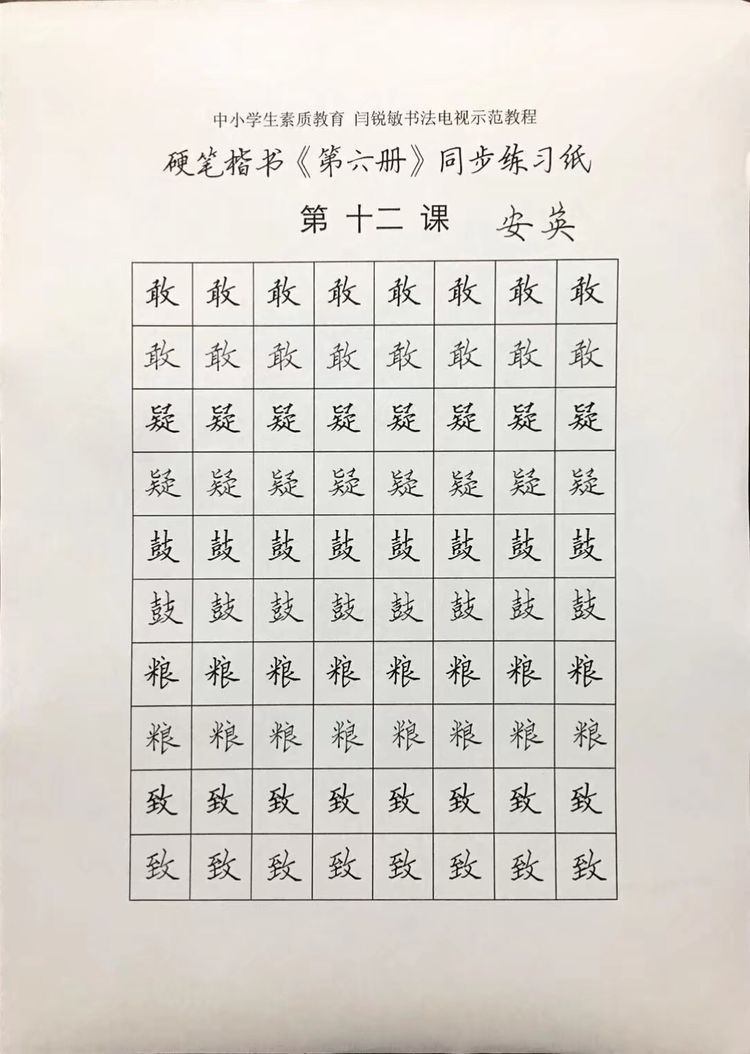 中小学生素质教育 闫锐敏书法电视示范教程
硬笔楷书《第六册》同步练习纸
第 十二 课 安英
敢 敢 敢 敢 敢 敢 敢 敢
敢 敢 敢 敢 敢 敢 敢 敢
疑 疑 疑 疑 疑 疑 疑 疑
疑 疑 疑 疑 疑 疑 疑 疑
鼓 鼓 鼓 鼓 鼓 鼓 鼓 鼓
鼓 鼓 鼓 鼓 鼓 鼓 鼓 鼓
粮 粮 粮 粮 粮 粮 粮 粮
粮 粮 粮 粮 粮 粮 粮 粮
致 致 致 致 致 致 致 致
致 致 致 致 致 致 致 致